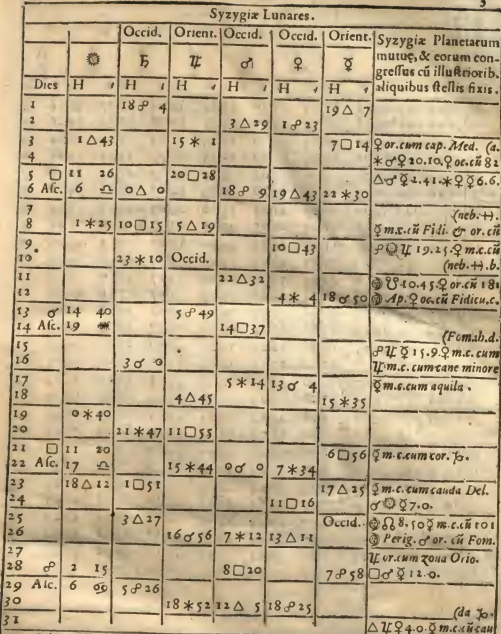 3
Syzygiæ Lunares.
Occid. Orient. Occid. Occid. Orient. Syzygiæ Planetarum
☼ ♄ ♃ ♂ ♀ ☿ mutuę, & eorum con-
gressus cū illustriorib.
Dies H ′ H ′ H ′ H ′ H ′ H ′ aliquibus stellis fixis.
1 18 ☍ 4 19 △ 7
2 3 △ 29 1 ☍ 23
3 1 △ 43 15 ✶ 1 7 □ 14 ♀ or. cum cap. Med. (a.
4 ✶ ♂ ♀ 20.10. ♀ oc. cū 82
5 □ 11 26 20 □ 28
6 Asc. 6 ♎ 0 △ 0 18 ☍ 9 19 △ 43 22 ✶ 30 △ ♂ ☿ 2.41. ✶ ♀ ☿ 6.6.
7 (neb. ♐.
8 1 ✶ 25 10 □ 15 5 △ 19 ☿ m.c. cū Fidi. & or. cū
9 10 □ 43 ☍ ☼ ♃ 19.25. ☿ m. c. cum
10 23 ✶ 10 Occid. (neb. ♐. b.
11 22 △ 32 ☋ 10.45. ♀ or. cū 181
12 4 ✶ 4 18 ☌ 50 Ap. ♀ oc. cū Fidicu. c.
13 ☌ 14 40 5 ☍ 49
14 Asc. 19 ♒ 14 □ 37
15 (Fom. ab. d.
16 3 ☌ 0 ☍ ♃ ☿ 15.9. ♀ m.c. cum
17 5 ✶ 14 13 ☌ 4 ♃ m.c. cum cane minore
18 4 △ 45 15 ✶ 35 ☿ m. c. cum aquila.
19 0 ✶ 40
20 21 ✶ 47 11 □ 55
21 □ 11 20 6 □ 56 ☿ m. c. cum cor. ♑.
22 Asc. 17 ♎ 15 ✶ 44 0 ☌ 0 7 ✶ 34
23 18 △ 12 1 □ 51 17 △ 25 ☿ m. c. cum cauda Del.
24 11 □ 16 ☌ ☼ ☿ 7.0.
25 3 △ 27 Occid. ☊ 8.50 ☿ m.c. cū 101
26 16 ☌ 56 7 ✶ 12 13 △ 11 Perig. ♂ or. cū Fom.
27 ♃ or. cum zona Orio.
28 ☍ 2 15 8 □ 20 7 ☍ 58 □ ♂ ☿ 12.0.
29 Asc. 6 ♋ 5 ☍ 26
30 18 ✶ 52 12 △ 5 18 ☍ 25 (da ♑.
31 △ ♃ ♀ 4.0. ☿ m.c. cū cau